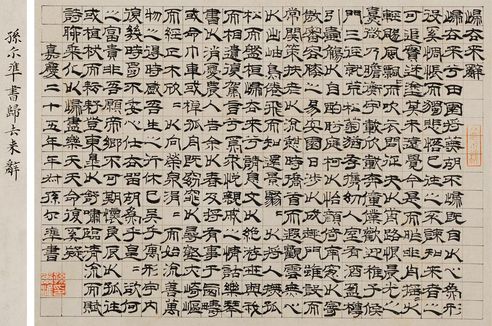 歸去來辭
歸去來兮田園將蕪胡不歸旣自以心為形
役奚惆悵而獨悲悟已往之不諫知來者之
可追實迷途其未遠覺今是而昨非舟搖搖以
輕颺風飄飄而吹衣問征夫以前路恨晨光之
熹微乃瞻衡宇載欣載奔僮僕歡迎稚子候
門三徑就荒松菊猶存攜幼入室有酒盈樽
引壺觴以自酌眄庭柯以怡顏倚南窗以寄
傲審容膝之易安園日涉以成趣門雖設而
常關策扶老以流憩時矯首而遐觀雲無心
以出岫鳥倦飛而知還景翳翳以將入撫孤
松而盤桓歸去來兮請息交以絕游世與我
而相遺復駕言兮焉求悅親戚之情話樂琴
書以消憂農人告余以春及將有事乎西疇
或命巾車或棹孤舟旣窈窕以尋壑亦崎嶇
而經丘木欣欣以向榮泉涓涓而始流善萬
物之得時感吾生之行休已矣乎寓形宇內
復幾時曷不委心任去留胡為乎遑遑欲何
之富貴非吾願帝鄉不可期懷良辰以孤往
或植杖而耘耔登東皋以舒嘯臨清流而賦
詩聊乘化以歸盡樂夫天命復奚疑
嘉慶二十五年 孫尔準書
孫尔準書歸去來辭